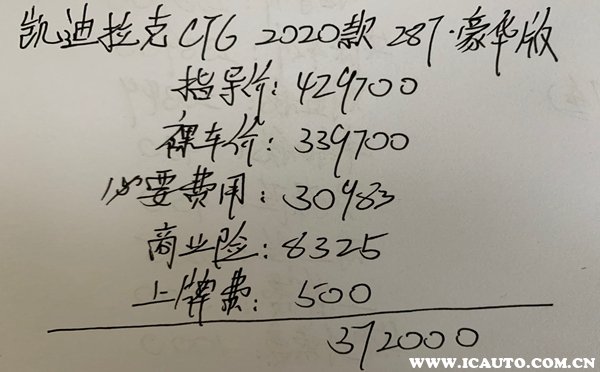 凯迪拉克 CT6 2020款 28T·豪华版
指导价：429700
裸车价：339700
必要费用：30983
商业险：8325
上牌费：500
372000
WWW.ICAUTO.COM.CN